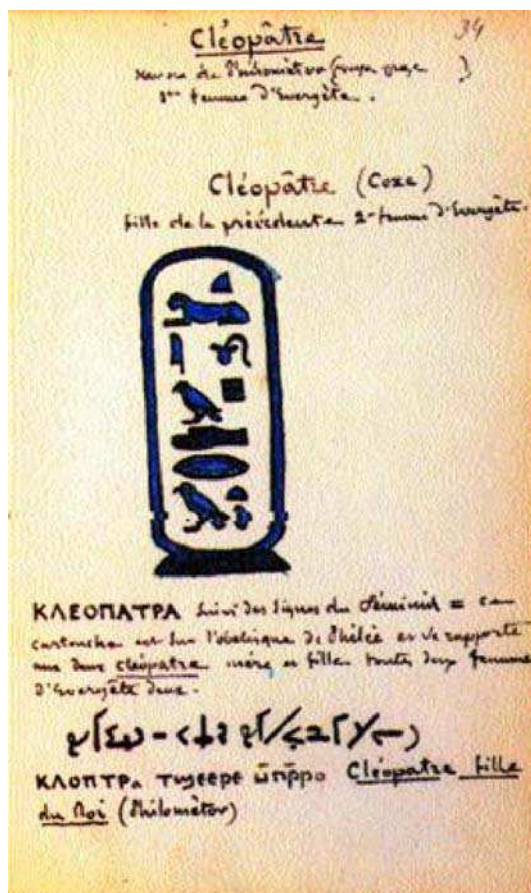 Cléopâtre 34
de Philométor
femme d'Evergète.
Cléopâtre
fille de la précédente 2e femme d'Evergète.
ΚΛΕΟΠΑΤΡΑ suivi des signes du féminin = ce
cartouche est sur l'obélisque de Philæ et se rapporte
aux deux cléopatre mère et fille toutes deux femmes
d'Evergète deux.
ⲕⲗⲟⲡⲧⲣⲁ ⲧϣⲉⲉⲣⲉ Cléopatre fille
du Roi (Philométor)